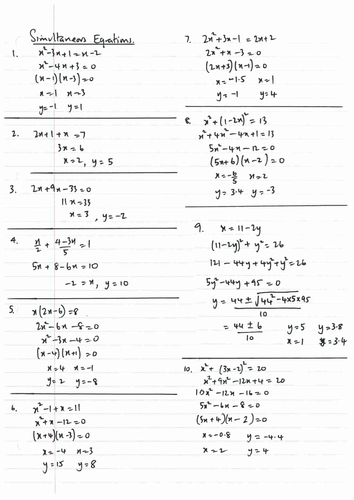 Simultaneous Equations.
1. x²-3x+1 = x-2
x²-4x+3=0
(x-1)(x-3)=0
x=1 x=3
y=-1 y=1
2. 2x+1+x=7
3x=6
x=2, y=5
3. 2x+9x-33=0
11x=33
x=3, y=-2
4. x/2 + 4-3x/5 = 1
5x+8-6x=10
-2=x, y=10
5. x(2x-6)=8
2x²-6x-8=0
x²-3x-4=0
(x-4)(x+1)=0
x=4 x=-1
y=2 y=-8
6. x²-1+x=11
x²+x-12=0
(x+4)(x-3)=0
x=-4 x=3
y=15 y=8
7. 2x²+3x-1=2x+2
2x²+x-3=0
(2x+3)(x-1)=0
x=-1.5 x=1
y=-1 y=4
8. x²+(1-2x)²=13
x²+4x²-4x+1=13
5x²-4x-12=0
(5x+6)(x-2)=0
x=-6/5 x=2
y=3.4 y=-3
9. x=11-2y
(11-2y)²+y²=26
121-44y+4y²+y²=26
5y²-44y+95=0
y=44±√44²-4x5x95/10
=44±6/10 y=5 y=3.8
x=1 x=3.4
10. x²+(3x-2)²=20
x²+9x²-12x+4=20
10x²-12x-16=0
5x²-6x-8=0
(5x+4)(x-2)=0
x=-0.8 y=-4.4
x=2 y=4